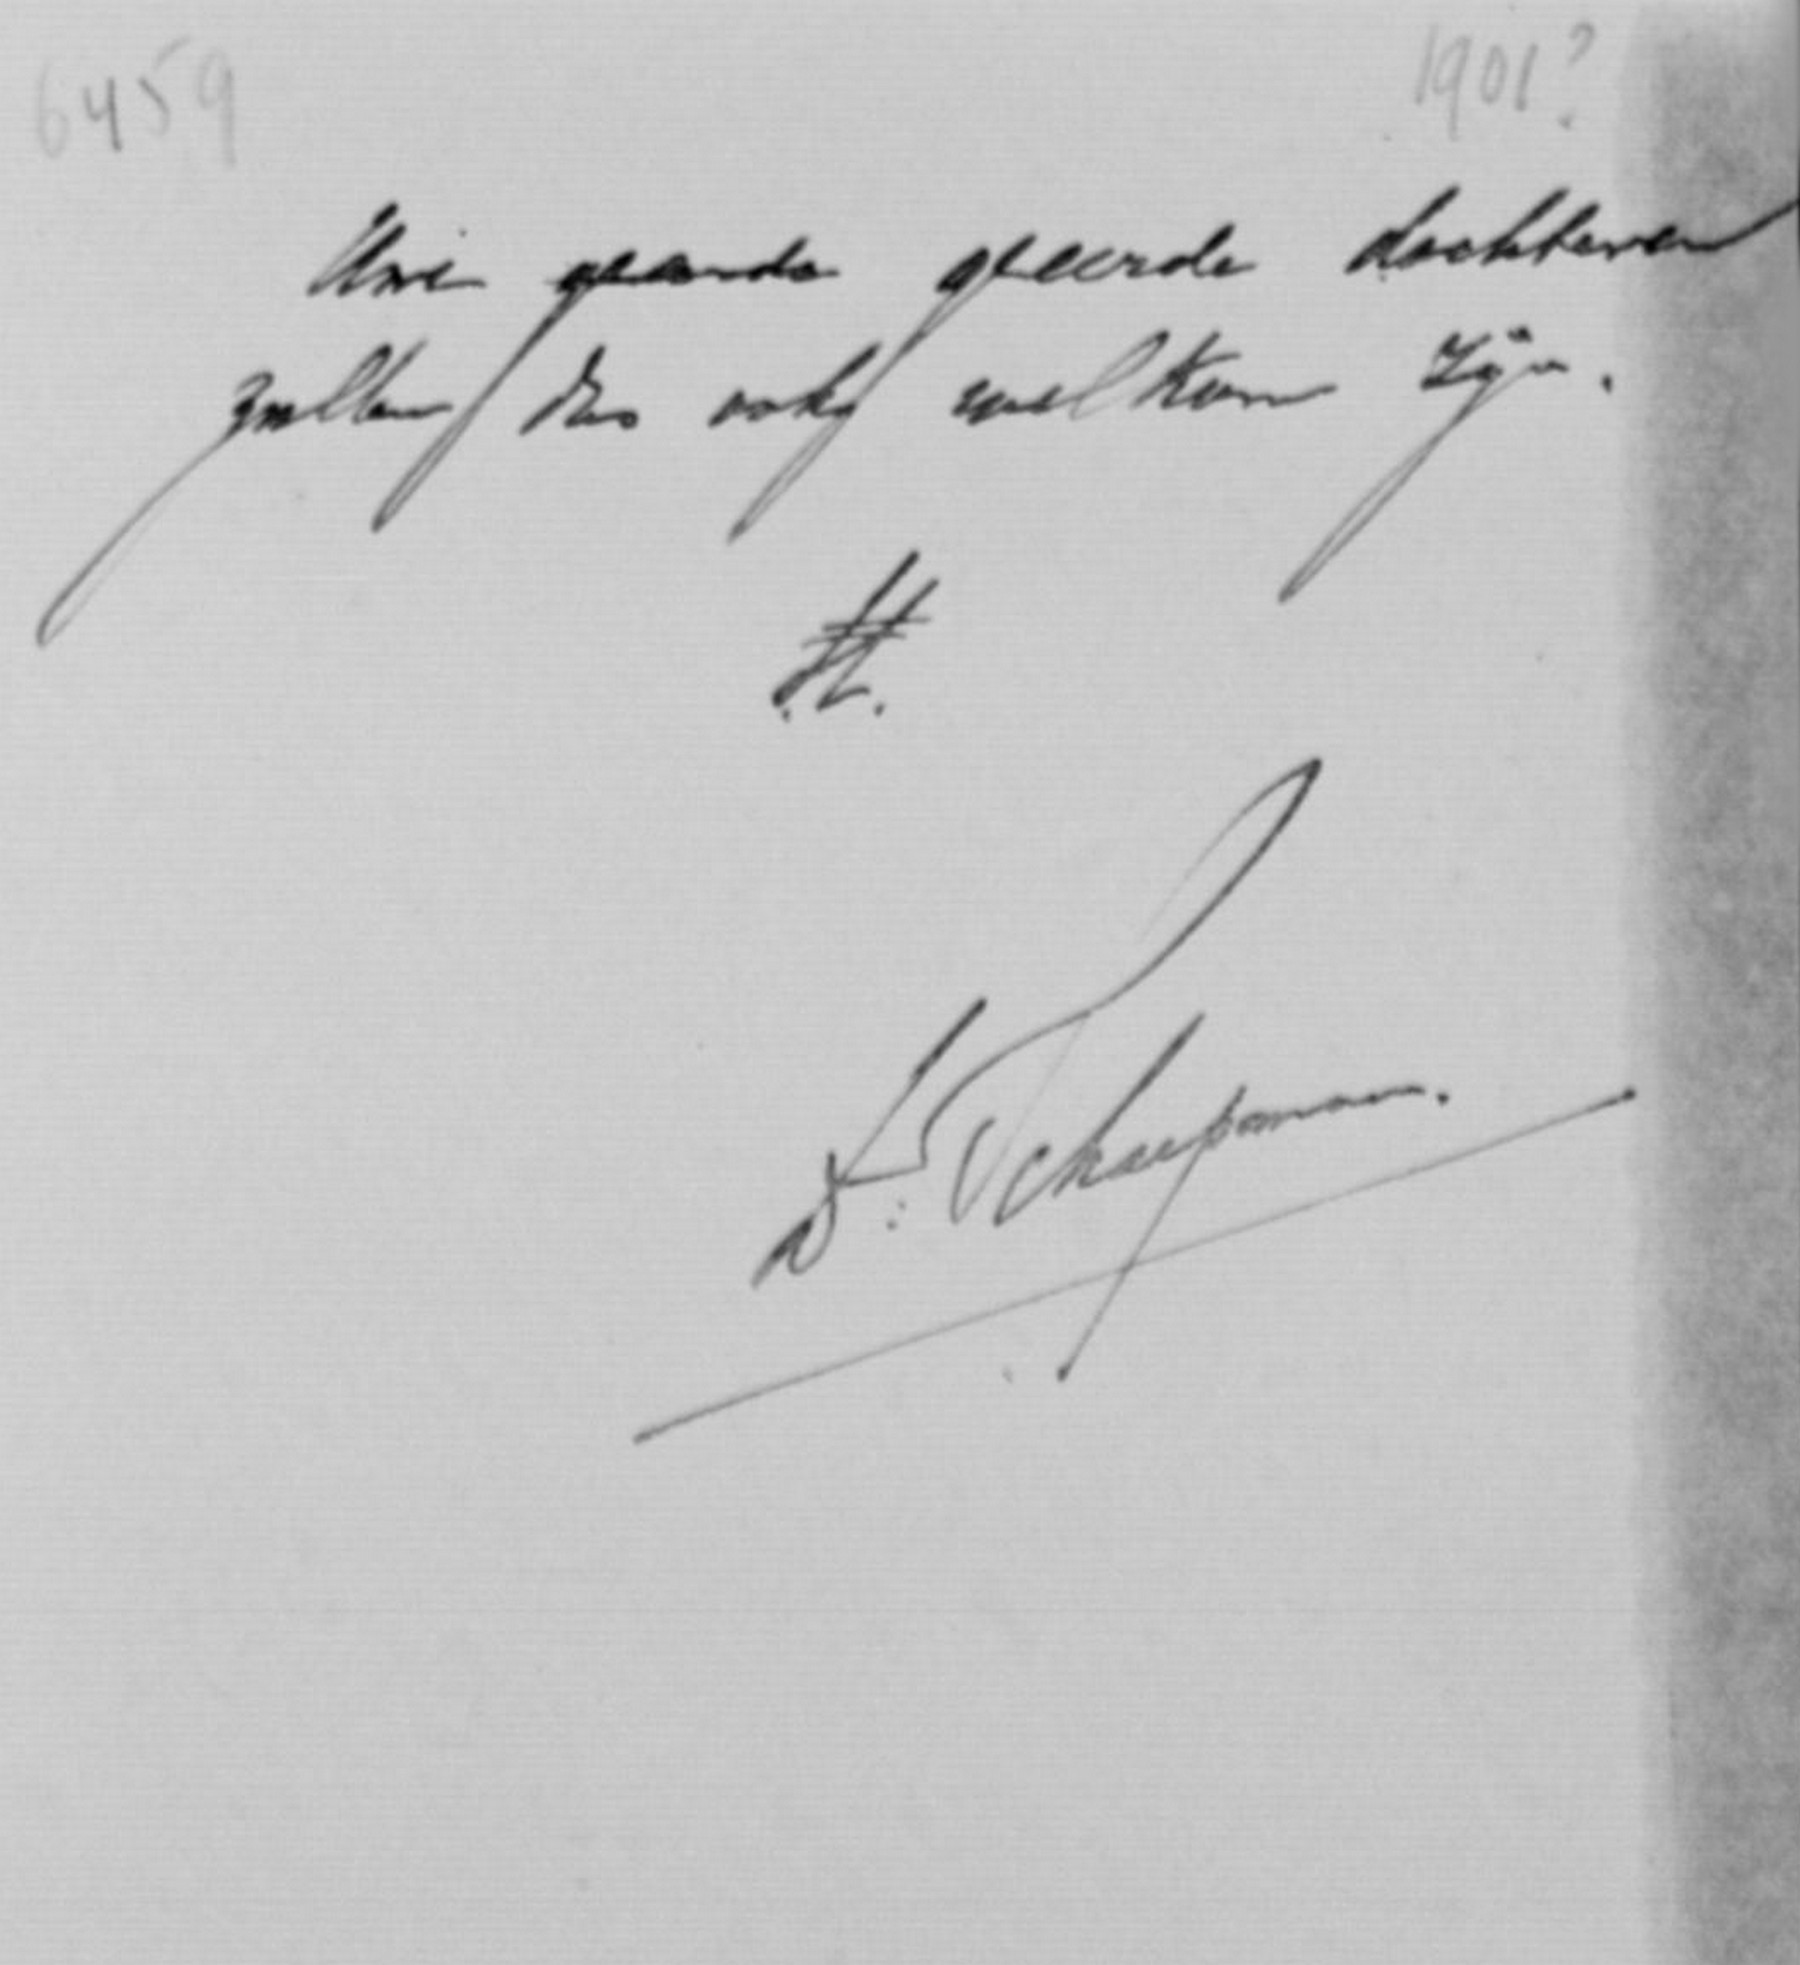 6459 1901?
Uwe geeerde dochteren
zullen dus ook welkom zijn.
tt.
Dr. Schaepman.